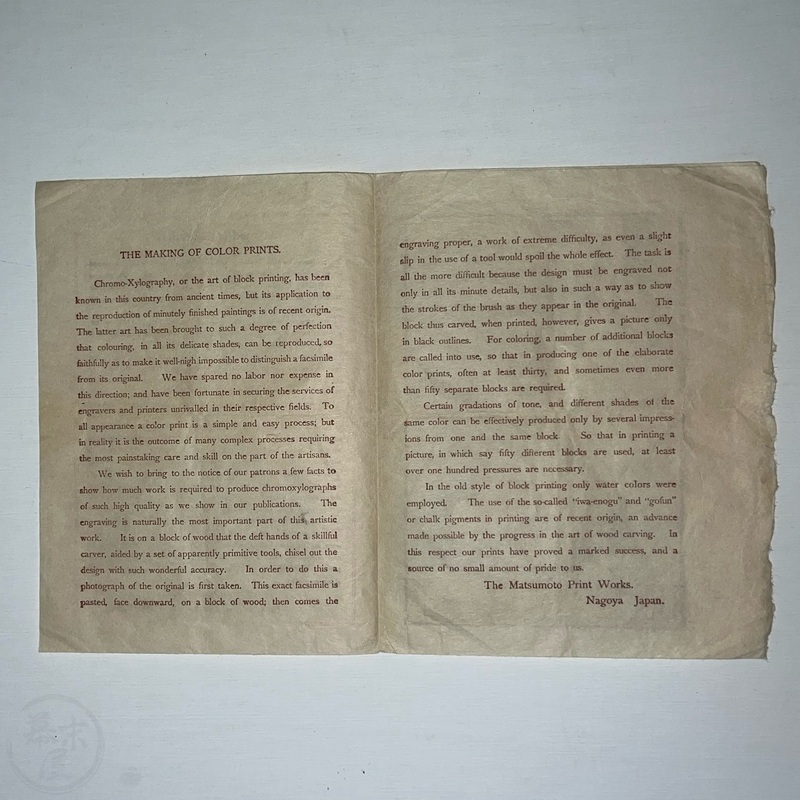 THE MAKING OF COLOR PRINTS.
Chromo-Xylography, or the art of block printing, has been
known in this country from ancient times, but its application to
the reproduction of minutely finished paintings is of recent origin.
The latter art has been brought to such a degree of perfection
that colouring, in all its delicate shades, can be reproduced, so
faithfully as to make it well-nigh impossible to distinguish a facsimile
from its original. We have spared no labor nor expense in
this direction; and have been fortunate in securing the services of
engravers and printers unrivalled in their respective fields. To
all appearance a color print is a simple and easy process; but
in reality it is the outcome of many complex processes requiring
the most painstaking care and skill on the part of the artisans.
We wish to bring to the notice of our patrons a few facts to
show how much work is required to produce chromoxylographs
of such high quality as we show in our publications. The
engraving is naturally the most important part of this artistic
work. It is on a block of wood that the deft hands of a skillful
carver, aided by a set of apparently primitive tools, chisel out the
design with such wonderful accuracy. In order to do this a
photograph of the original is first taken. This exact facsimile is
pasted, face downward, on a block of wood; then comes the
engraving proper, a work of extreme difficulty, as even a slight
slip in the use of a tool would spoil the whole effect. The task is
all the more difficult because the design must be engraved not
only in all its minute details, but also in such a way as to show
the strokes of the brush as they appear in the original. The
block thus carved, when printed, however, gives a picture only
in black outlines. For coloring, a number of additional blocks
are called into use, so that in producing one of the elaborate
color prints, often at least thirty, and sometimes even more
than fifty separate blocks are required.
Certain gradations of tone, and different shades of the
same color can be effectively produced only by several impress-
ions from one and the same block So that in printing a
picture, in which say fifty different blocks are used, at least
over one hundred pressures are necessary.
In the old style of block printing only water colors were
employed. The use of the so-called "iwa-enogu" and "gofun"
or chalk pigments in printing are of recent origin, an advance
made possible by the progress in the art of wood carving. In
this respect our prints have proved a marked success, and a
source of no small amount of pride to us.
The Matsumoto Print Works.
Nagoya Japan.
幕末屋